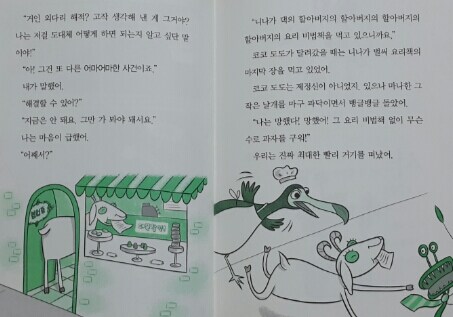 "거인 외다리 해적? 고작 생각해 낸 게 그거야?
나는 저걸 도대체 어떻게 하면 되는지 알고 싶단 말
이야!"
"아! 그건 또 다른 어마어마한 사건이죠."
내가 말했어.
"해결할 수 있어?"
"지금은 안 돼요. 그만 가 봐야 돼서요."
나는 마음이 급했어.
"어째서?"
"니나가 댁의 할아버지의 할아버지의 할아버지의
할아버지의 요리 비법책을 먹고 있으니까요."
코코 도도가 달려갔을 때는 니나가 벌써 요리책의
마지막 장을 먹고 있었어.
코코 도도는 제정신이 아니었지. 있으나 마나한 그
작은 날개를 마구 파닥이면서 뱅글뱅글 돌았어.
"나는 망했다! 망했어! 그 요리 비법책 없이 무슨
수로 과자를 구워!"
우리는 진짜 최대한 빨리 거기를 떠났어.